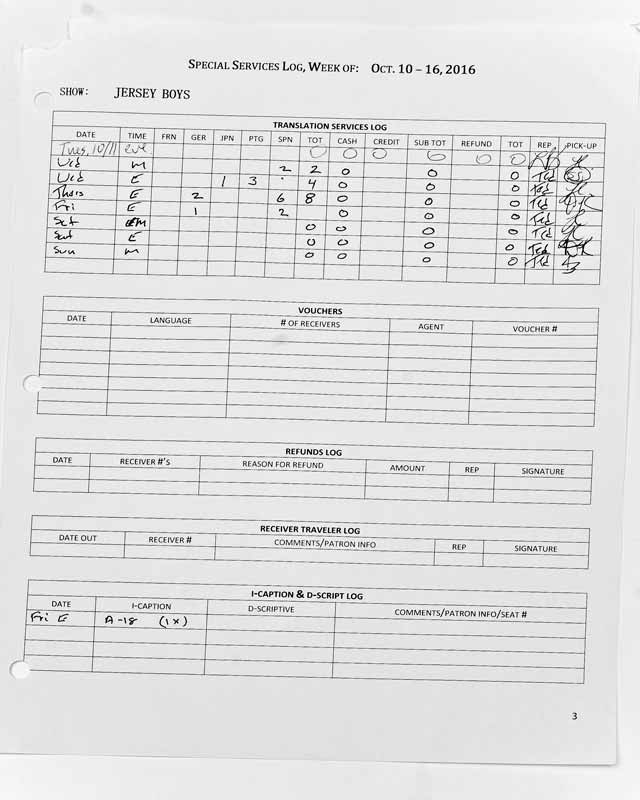 SPECIAL SERVICES LOG, WEEK OF: OCT. 10 – 16, 2016
SHOW: JERSEY BOYS
TRANSLATION SERVICES LOG
DATE TIME FRN GER JPN PTG SPN TOT CASH CREDIT SUB TOT REFUND TOT REP PICK-UP
Tues, 10/11 eve 0 0 0 0 0 0
Wed M 2 2 0 0 0 Ted
Wed E 1 3 4 0 0 0 Ted
Thurs E 2 6 8 0 0 0 Ted
Fri E 1 2 0 0 0 Ted
Sat M 0 0 0 0 Ted
Sat E 0 0 0 0 Ted
Sun M 0 0 0 0 Ted
VOUCHERS
DATE LANGUAGE # OF RECEIVERS AGENT VOUCHER #
REFUNDS LOG
DATE RECEIVER #'S REASON FOR REFUND AMOUNT REP SIGNATURE
RECEIVER TRAVELER LOG
DATE OUT RECEIVER # COMMENTS/PATRON INFO REP SIGNATURE
I-CAPTION & D-SCRIPT LOG
DATE I-CAPTION D-SCRIPTIVE COMMENTS/PATRON INFO/SEAT #
Fri E A-18 (1x)
3